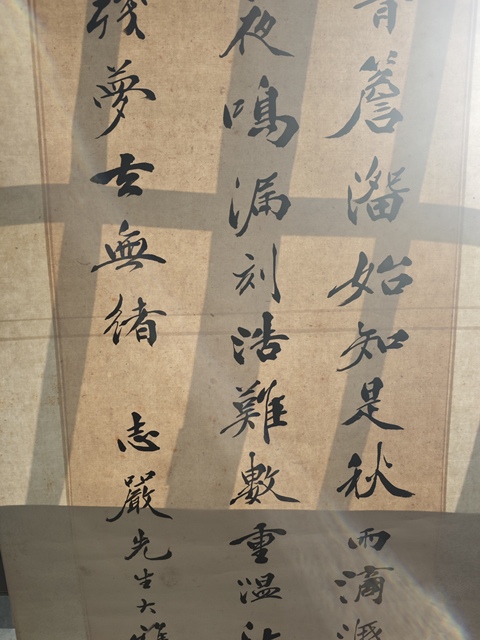 簷溜始知是秋雨滴
夜鳴漏刻浩難數重溫
殘夢去無緒
志嚴先生大雅